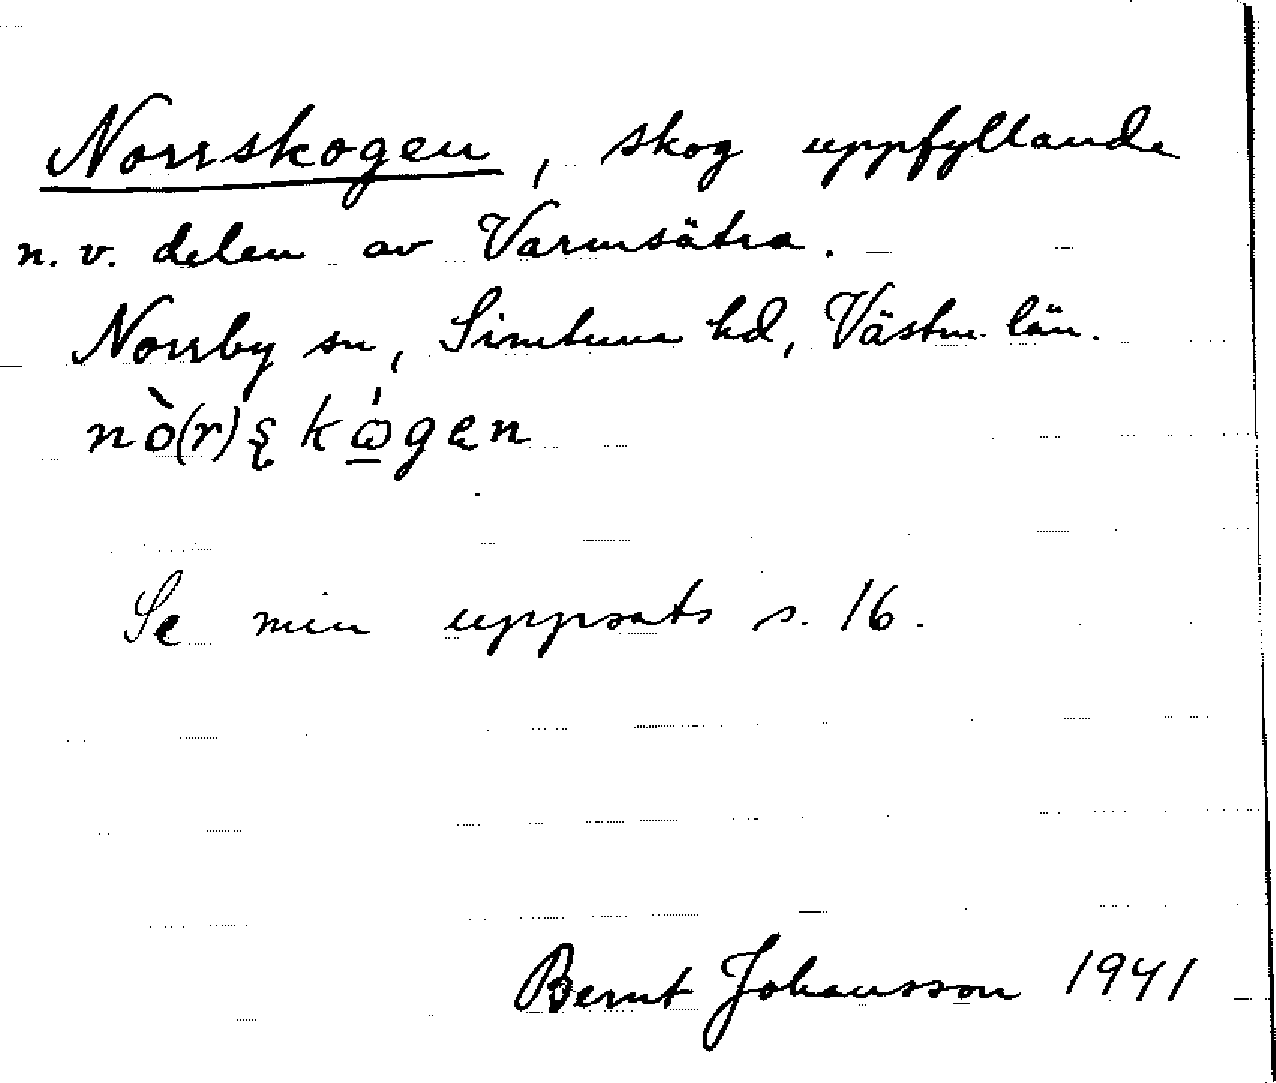 Norrskogen, skog uppfyllande
n. v. delen av Varmsätra.
Norrby sn, Simtuna hd, Västm. län.
nò(r)ʂkώ̲gen
Se min uppsats s. 16.
Bernt Johansson 1941